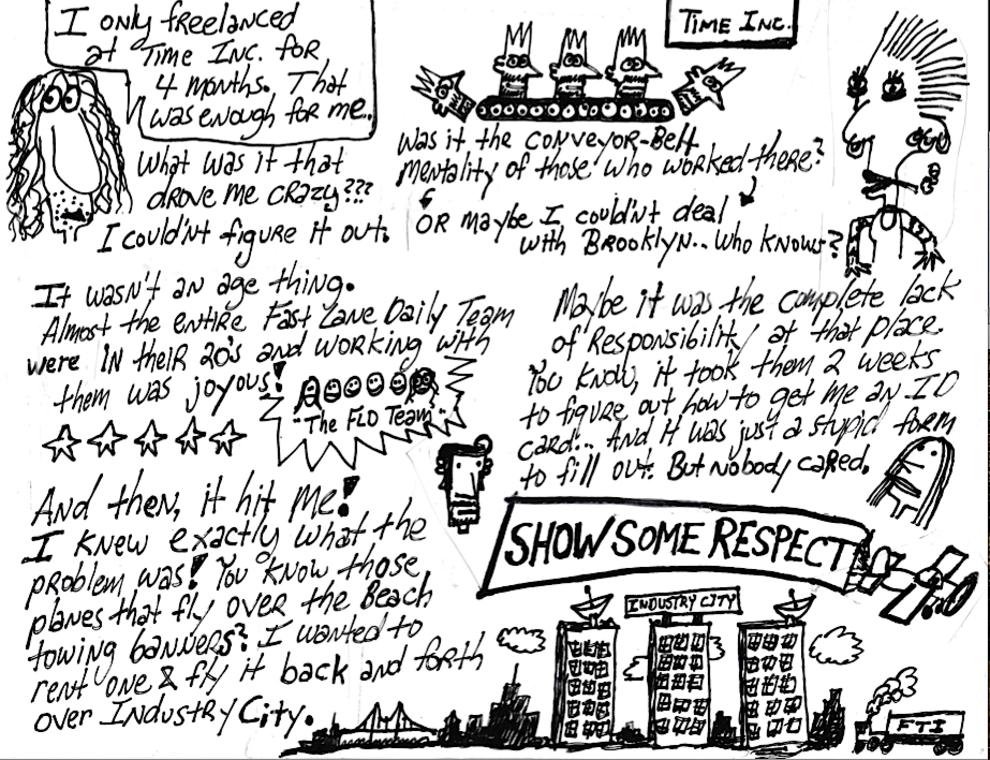 I only freelanced
at Time Inc. for
4 months. That
was enough for me..
What was it that
drove me crazy???
I could'nt figure it out.
TIME INC.
Was it the conveyor-Belt
mentality of those who worked there?
OR maybe I could'nt deal
with Brooklyn.. Who knows?
It wasn't an age thing.
Almost the entire Fast Lane Daily Team
were IN their 20's and working with
them was joyous!
"The FLD Team"
Maybe it was the complete lack
of Responsibility at that place.
You know, it took them 2 weeks
to figure out how to get me an ID
card!.. And it was just a stupid form
to fill out. But nobody cared.
And then, it hit me!
I knew exactly what the
problem was! You know those
planes that fly over the Beach
towing banners? I wanted to
rent one & fly it back and forth
over Industry City.
SHOW SOME RESPECT
INDUSTRY CITY
FTI